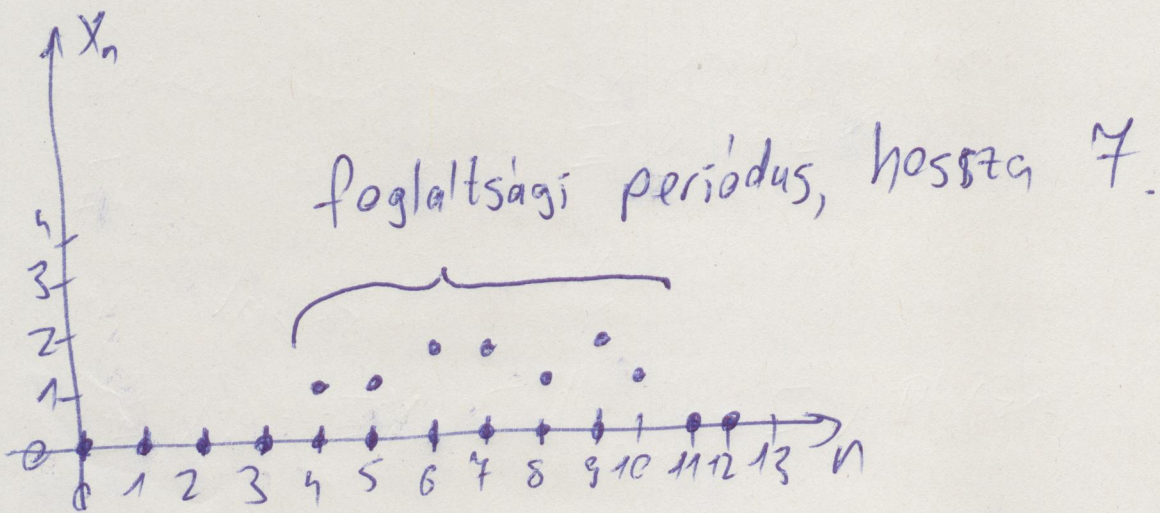 Xn
foglaltsági periódus, hossza 7.
4
3
2
1
0
0 1 2 3 4 5 6 7 8 9 10 11 12 13 n